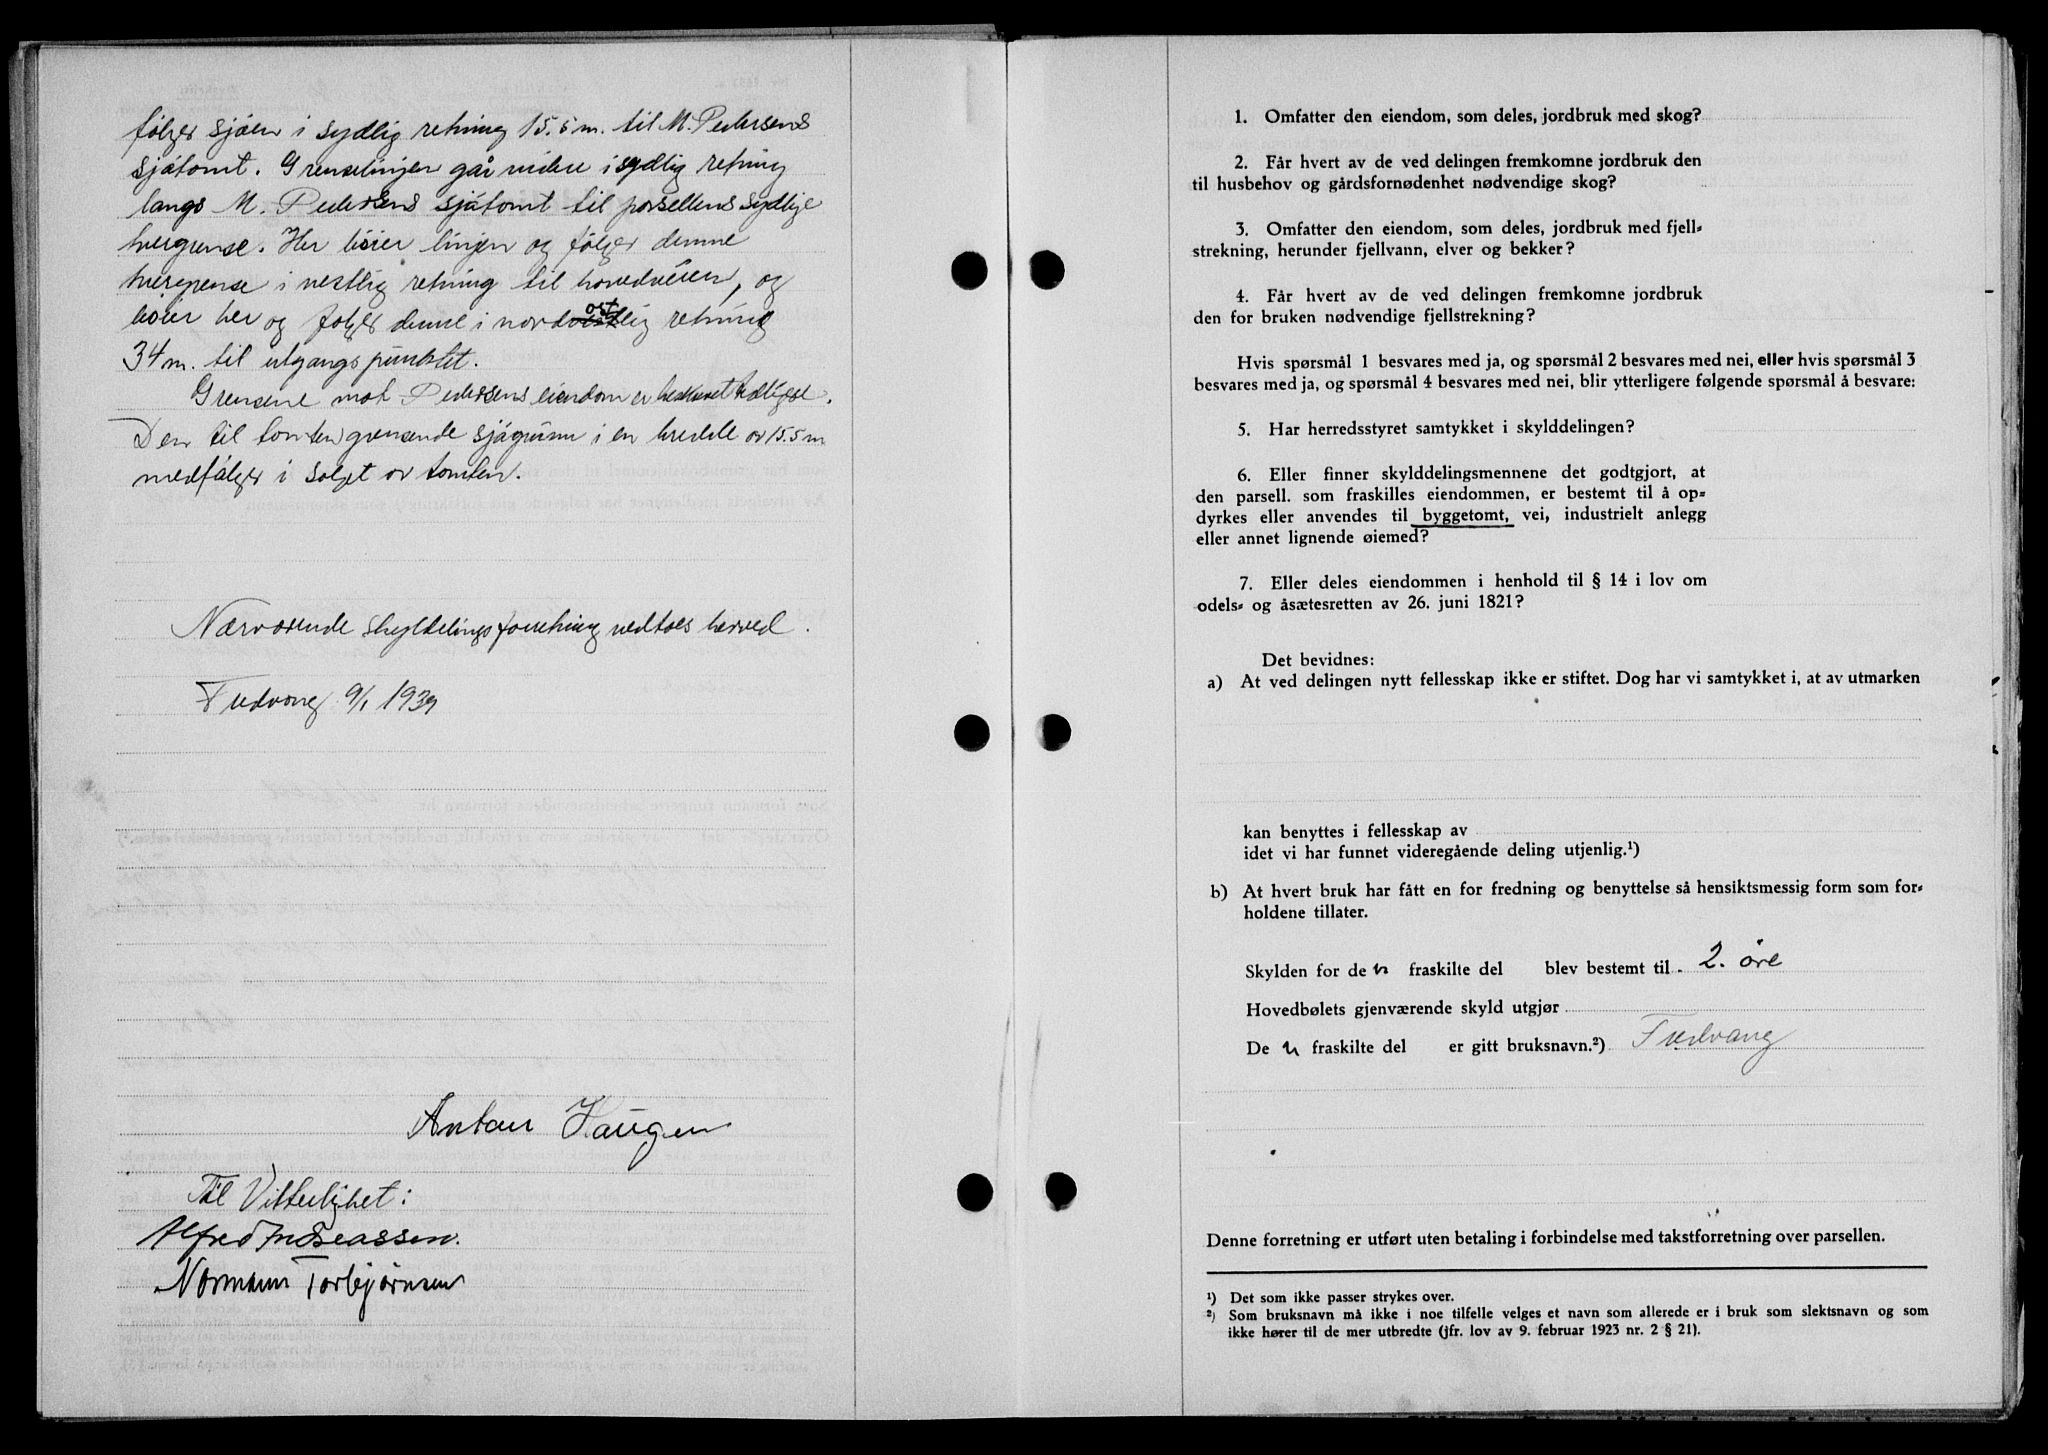 følger sjøen i sydlig retning 15.5 m. til M. Pedersens
sjøtomt. Grenselinjen går videre i sydlig retning
langs M. Pedersens sjøtomt til parsellens sydlige
tvergrense. Her bøier linjen og følger denne
tvergrense i vestlig retning til hovedveien, og
bøier her og følger denne i nordøstlig retning
34 m. til utgangspunktet.
Grensene mot Pedersens eiendom er
Den til tomten grensende sjøgrunn i en bredde av 15.5 m
medfølger i salget av tomten.
Nærværende skylddelingsforretning vedtaes herved.
Fredvang 9/1 1939
Anton Haugen
Til Vitterlighet:
Alfred Andreassen.
Normann Torbjørnsen
1. Omfatter den eiendom, som deles, jordbruk med skog?
2. Får hvert av de ved delingen fremkomne jordbruk den
til husbehov og gårdsfornødenhet nødvendige skog?
3. Omfatter den eiendom, som deles, jordbruk med fjell-
strekning, herunder fjellvann, elver og bekker?
4. Får hvert av de ved delingen fremkomne jordbruk
den for bruken nødvendige fjellstrekning?
Hvis spørsmål 1 besvares med ja, og spørsmål 2 besvares med nei, eller hvis spørsmål 3
besvares med ja, og spørsmål 4 besvares med nei, blir ytterligere følgende spørsmål å besvare:
5. Har herredsstyret samtykket i skylddelingen?
6. Eller finner skylddelingsmennene det godtgjort, at
den parsell. som fraskilles eiendommen, er bestemt til å op-
dyrkes eller anvendes til byggetomt, vei, industrielt anlegg
eller annet lignende øiemed?
7. Eller deles eiendommen i henhold til § 14 i lov om
odels- og åsætesretten av 26. juni 1821?
Det bevidnes:
a) At ved delingen nytt fellesskap ikke er stiftet. Dog har vi samtykket i, at av utmarken
kan benyttes i fellesskap av
idet vi har funnet videregående deling utjenlig.¹)
b) At hvert bruk har fått en for fredning og benyttelse så hensiktsmessig form som for-
holdene tillater.
Skylden for den fraskilte del blev bestemt til 2. øre
Hovedbølets gjenværende skyld utgjør
Den fraskilte del er gitt bruksnavn.²) Fredvang
Denne forretning er utført uten betaling i forbindelse med takstforretning over parsellen.
¹) Det som ikke passer strykes over.
²) Som bruksnavn må ikke i noe tilfelle velges et navn som allerede er i bruk som slektsnavn og som
ikke hører til de mer utbredte (jfr. lov av 9. februar 1923 nr. 2 § 21).